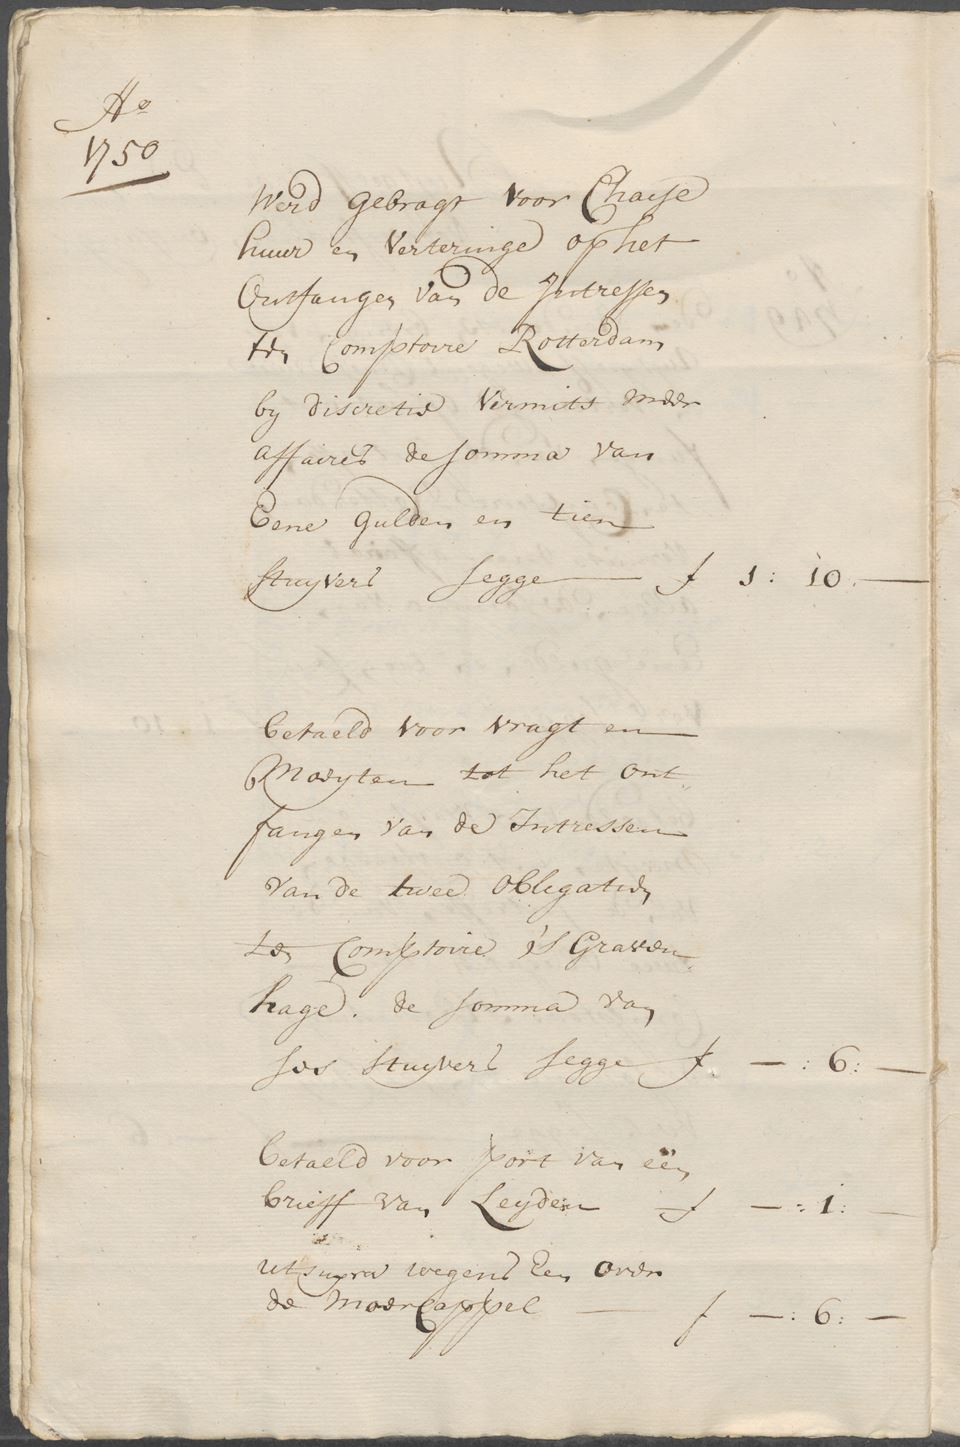 Ao
1750
Werd gebragt voor Chaise
huur en Verteringe op het
Ontfangen van de Intressen
ten Comptoire Rotterdam
by discretie Vermits meer
affaires de somma van
Eene gulden en tien
stuyvers segge f 1 : 10 . —
betaeld voor vragt en
Moeyten tot het ont„
fangen van de Intressen
van de twee obligatien
ten Comptoire 's Graven„
hage . de somma van
ses stuyvers segge f — : 6 : —
betaeld voor port van een
brieff van Leyden f — : 1 : —
ut supra wegens Een over
de Moercappel — f — : 6 : —